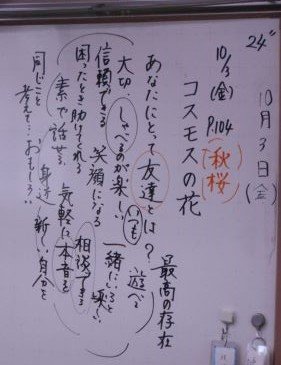 24"
10月3日(金)
10/3(金) P.104
(秋桜)
コスモスの花
最高の存在
あなたにとって友達とは?
遊べる
大切、しゃべるのが楽しい いつも一緒にいると楽しい
信頼できる 笑顔になる 相談できる
困ったとき助けてくれる 気軽に本音を
素で話せる
身近 新しい自分を
同じこと考えて…おもしろい